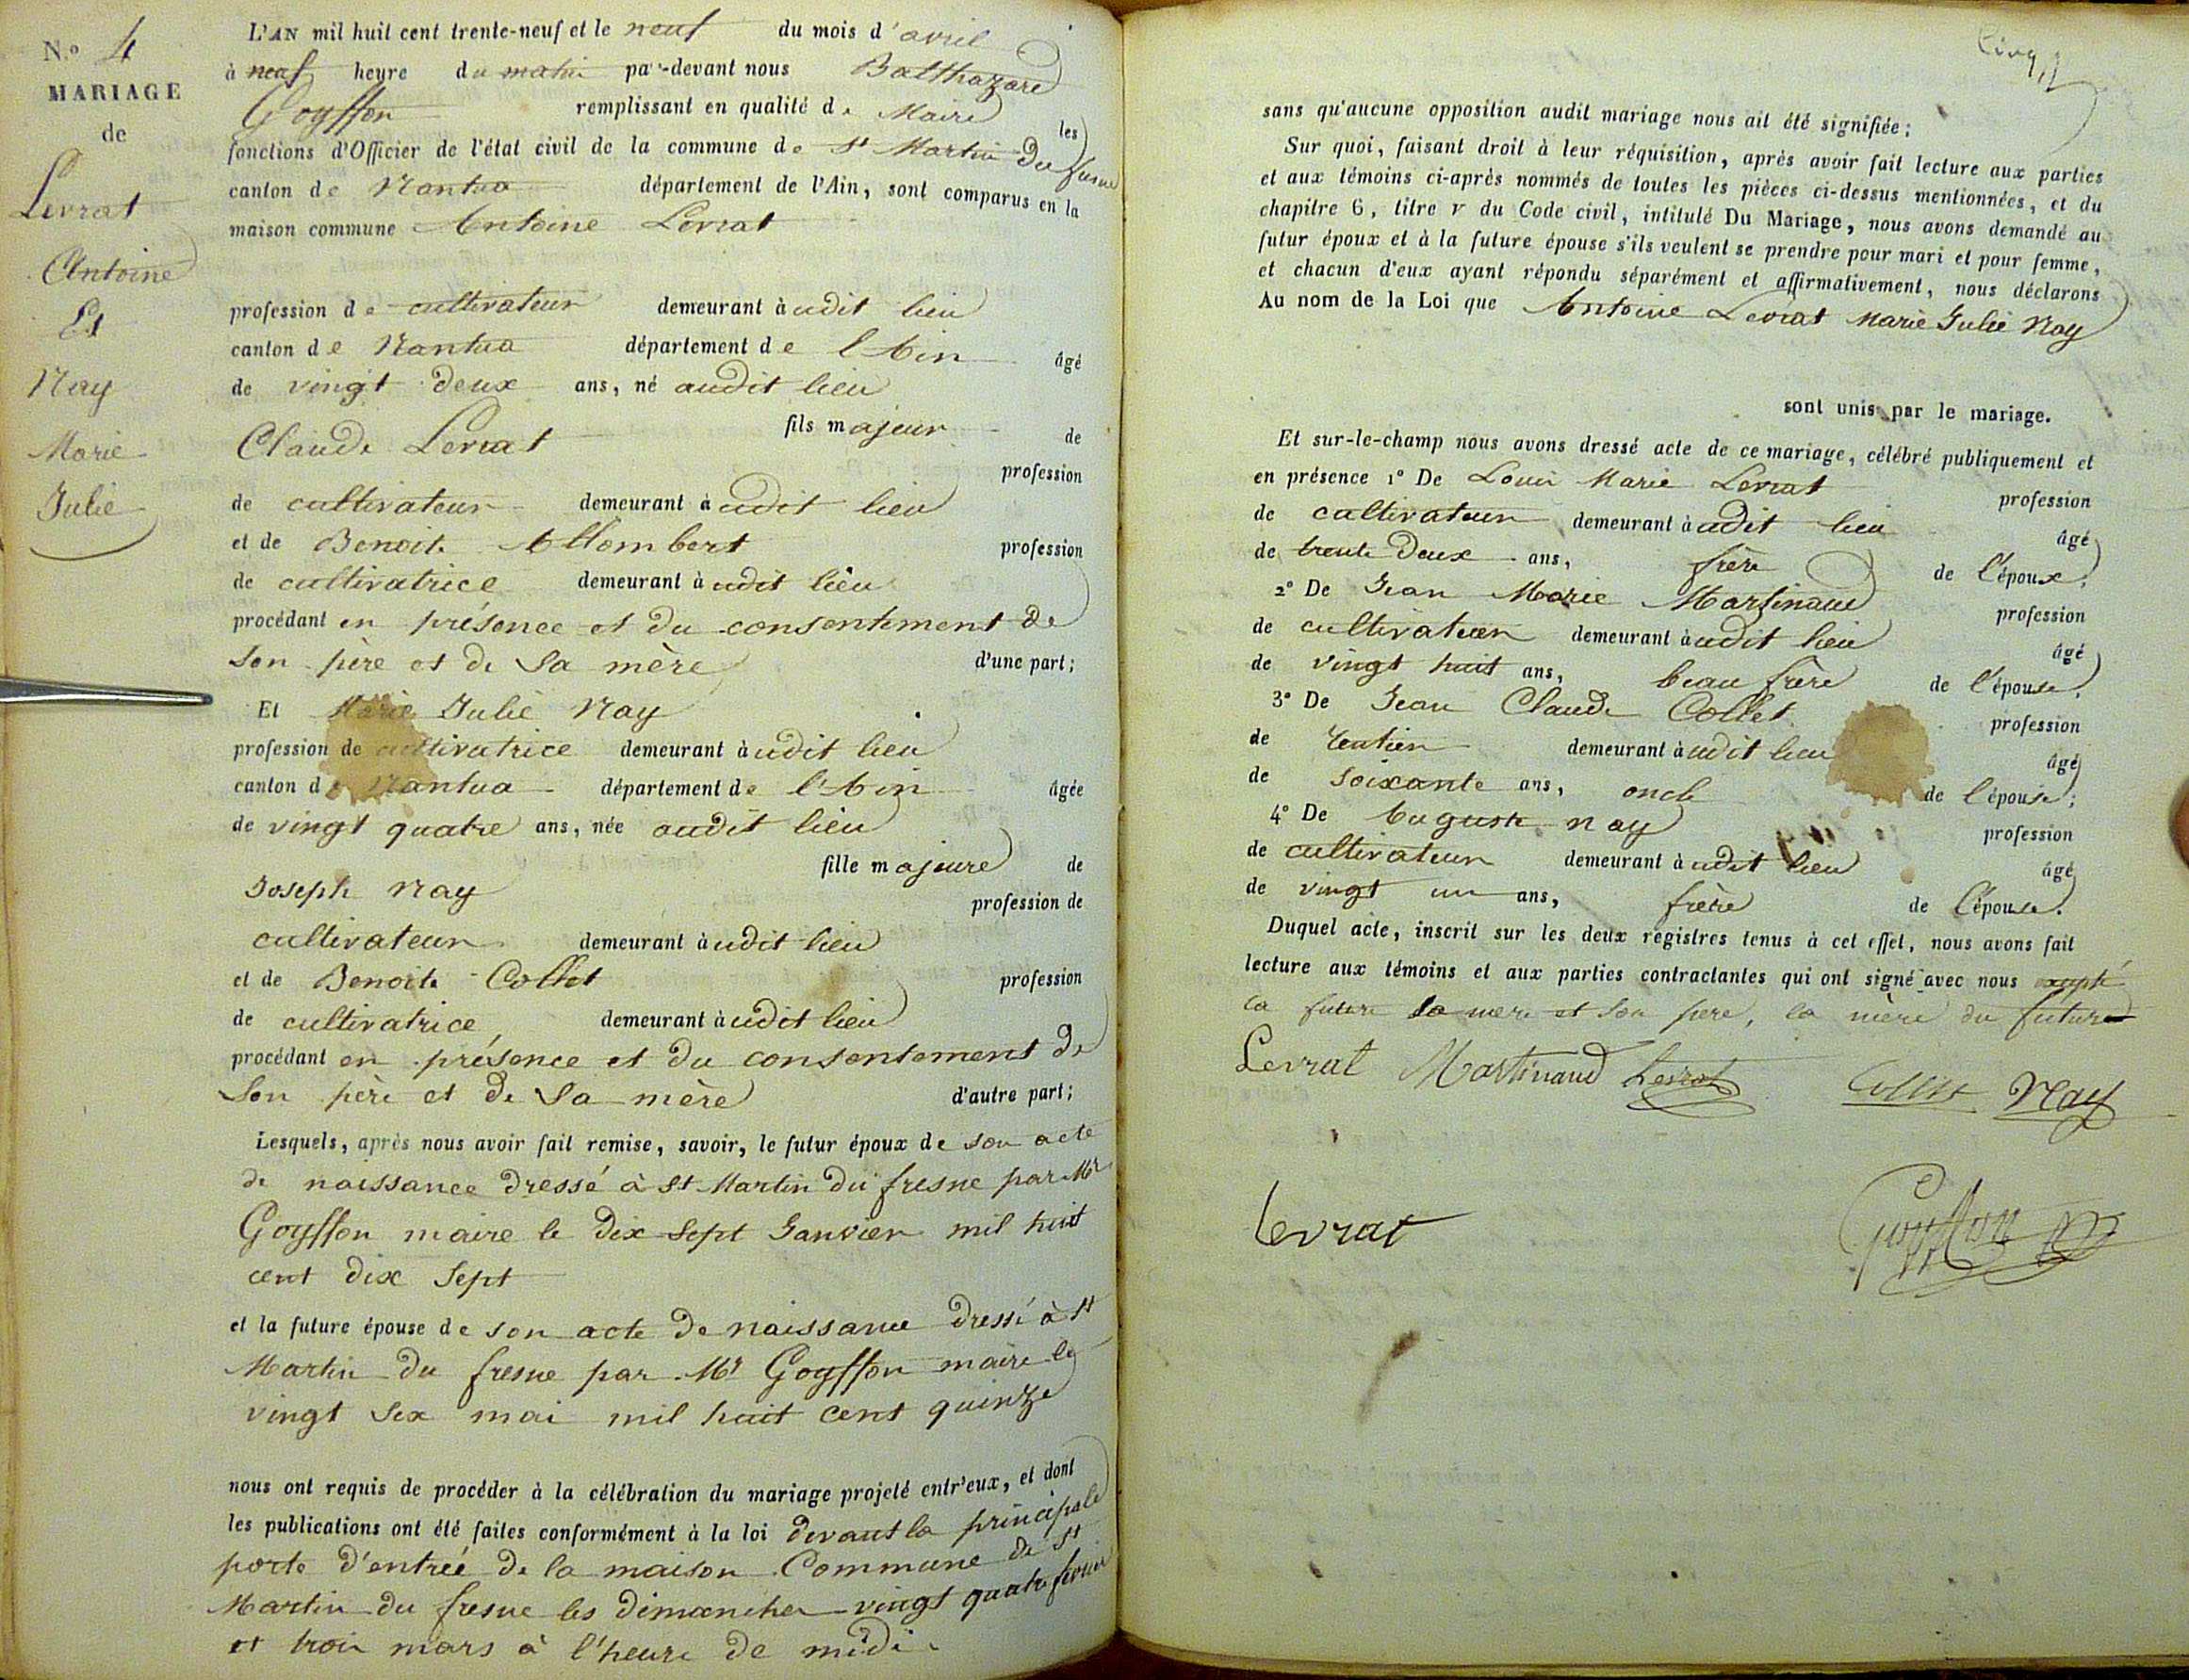 N.o 4
MARIAGE
de
Levrat
Antoine
Et
Nay
Marie
Julie
L'AN mil huit cent trente-neuf et le neuf du mois d'avril
à neuf heure du matin par-devant nous Balthazard
Goyffon remplissant en qualité de Maire les
fonctions d'Officier de l'état civil de la commune de St Martin Du fresne
canton de Nantua département de l'Ain, sont comparus en la
maison commune Antoine Levrat
profession de cultivateur demeurant audit lieu
canton de Nantua département de l'Ain âgé
de vingt deux ans, né audit lieu
fils majeur de
Claude Levrat profession
de cultivateur demeurant audit lieu
et de Benoite Allombert profession
de cultivatrice demeurant audit lieu
procédant en présence et du consentement de
son père et de sa mère d'une part;
Et Marie Julie Nay
profession de cultivatrice demeurant audit lieu
canton de Nantua département de l'Ain âgée
de vingt quatre ans, née audit lieu
fille majeure de
Joseph Nay profession de
cultivateur demeurant audit lieu
et de Benoite Collet profession
de cultivatrice demeurant audit lieu
procédant en présence et du consentement de
son père et de sa mère d'autre part;
Lesquels, après nous avoir fait remise, savoir, le futur époux de son acte
de naissance dressé à St Martin du fresne par Mr
Goyffon maire le dix sept Janvier mil huit
cent dix sept
et la future épouse de son acte de naissance dressé à St
Martin du fresne par Mr Goyffon maire le
vingt six mai mil huit cent quinze
nous ont requis de procéder à la célébration du mariage projeté entr'eux, et dont
les publications ont été faites conformément à la loi devant la principale
porte d'entrée de la maison Commune de St
Martin du fresne les dimanches vingt quatre fevrier
et trois mars à l'heure de midi
Cinq
sans qu'aucune opposition audit mariage nous ait été signifiée;
Sur quoi, faisant droit à leur réquisition, après avoir fait lecture aux parties
et aux témoins ci-après nommés de toutes les pièces ci-dessus mentionnées, et du
chapitre 6, titre V du Code civil, intitulé Du Mariage, nous avons demandé au
futur époux et à la future épouse s'ils veulent se prendre pour mari et pour femme,
et chacun d'eux ayant répondu séparément et affirmativement, nous déclarons
Au nom de la Loi que Antoine Levrat Marie Julie Nay
sont unis par le mariage.
Et sur-le-champ nous avons dressé acte de ce mariage, célébré publiquement et
en présence 1° De Louis Marie Levrat profession
de cultivateur demeurant audit lieu âgé
de trente deux ans, frère de l'époux;
2° De Jean Marie Martinaud profession
de cultivateur demeurant audit lieu âgé
de vingt huit ans, beau frère de l'épouse;
3° De Jean Claude Collet profession
de rentier demeurant audit lieu âgé
de soixante ans, oncle de l'épouse;
4° De Auguste Nay profession
de cultivateur demeurant audit lieu âgé
de vingt un ans, frère de l'épouse.
Duquel acte, inscrit sur les deux registres tenus à cet effet, nous avons fait
lecture aux témoins et aux parties contractantes qui ont signé avec nous excepté
la future sa mère et son père, la mère du futur
Levrat Martinaud Levrat Collet Nay
levrat Goyffon